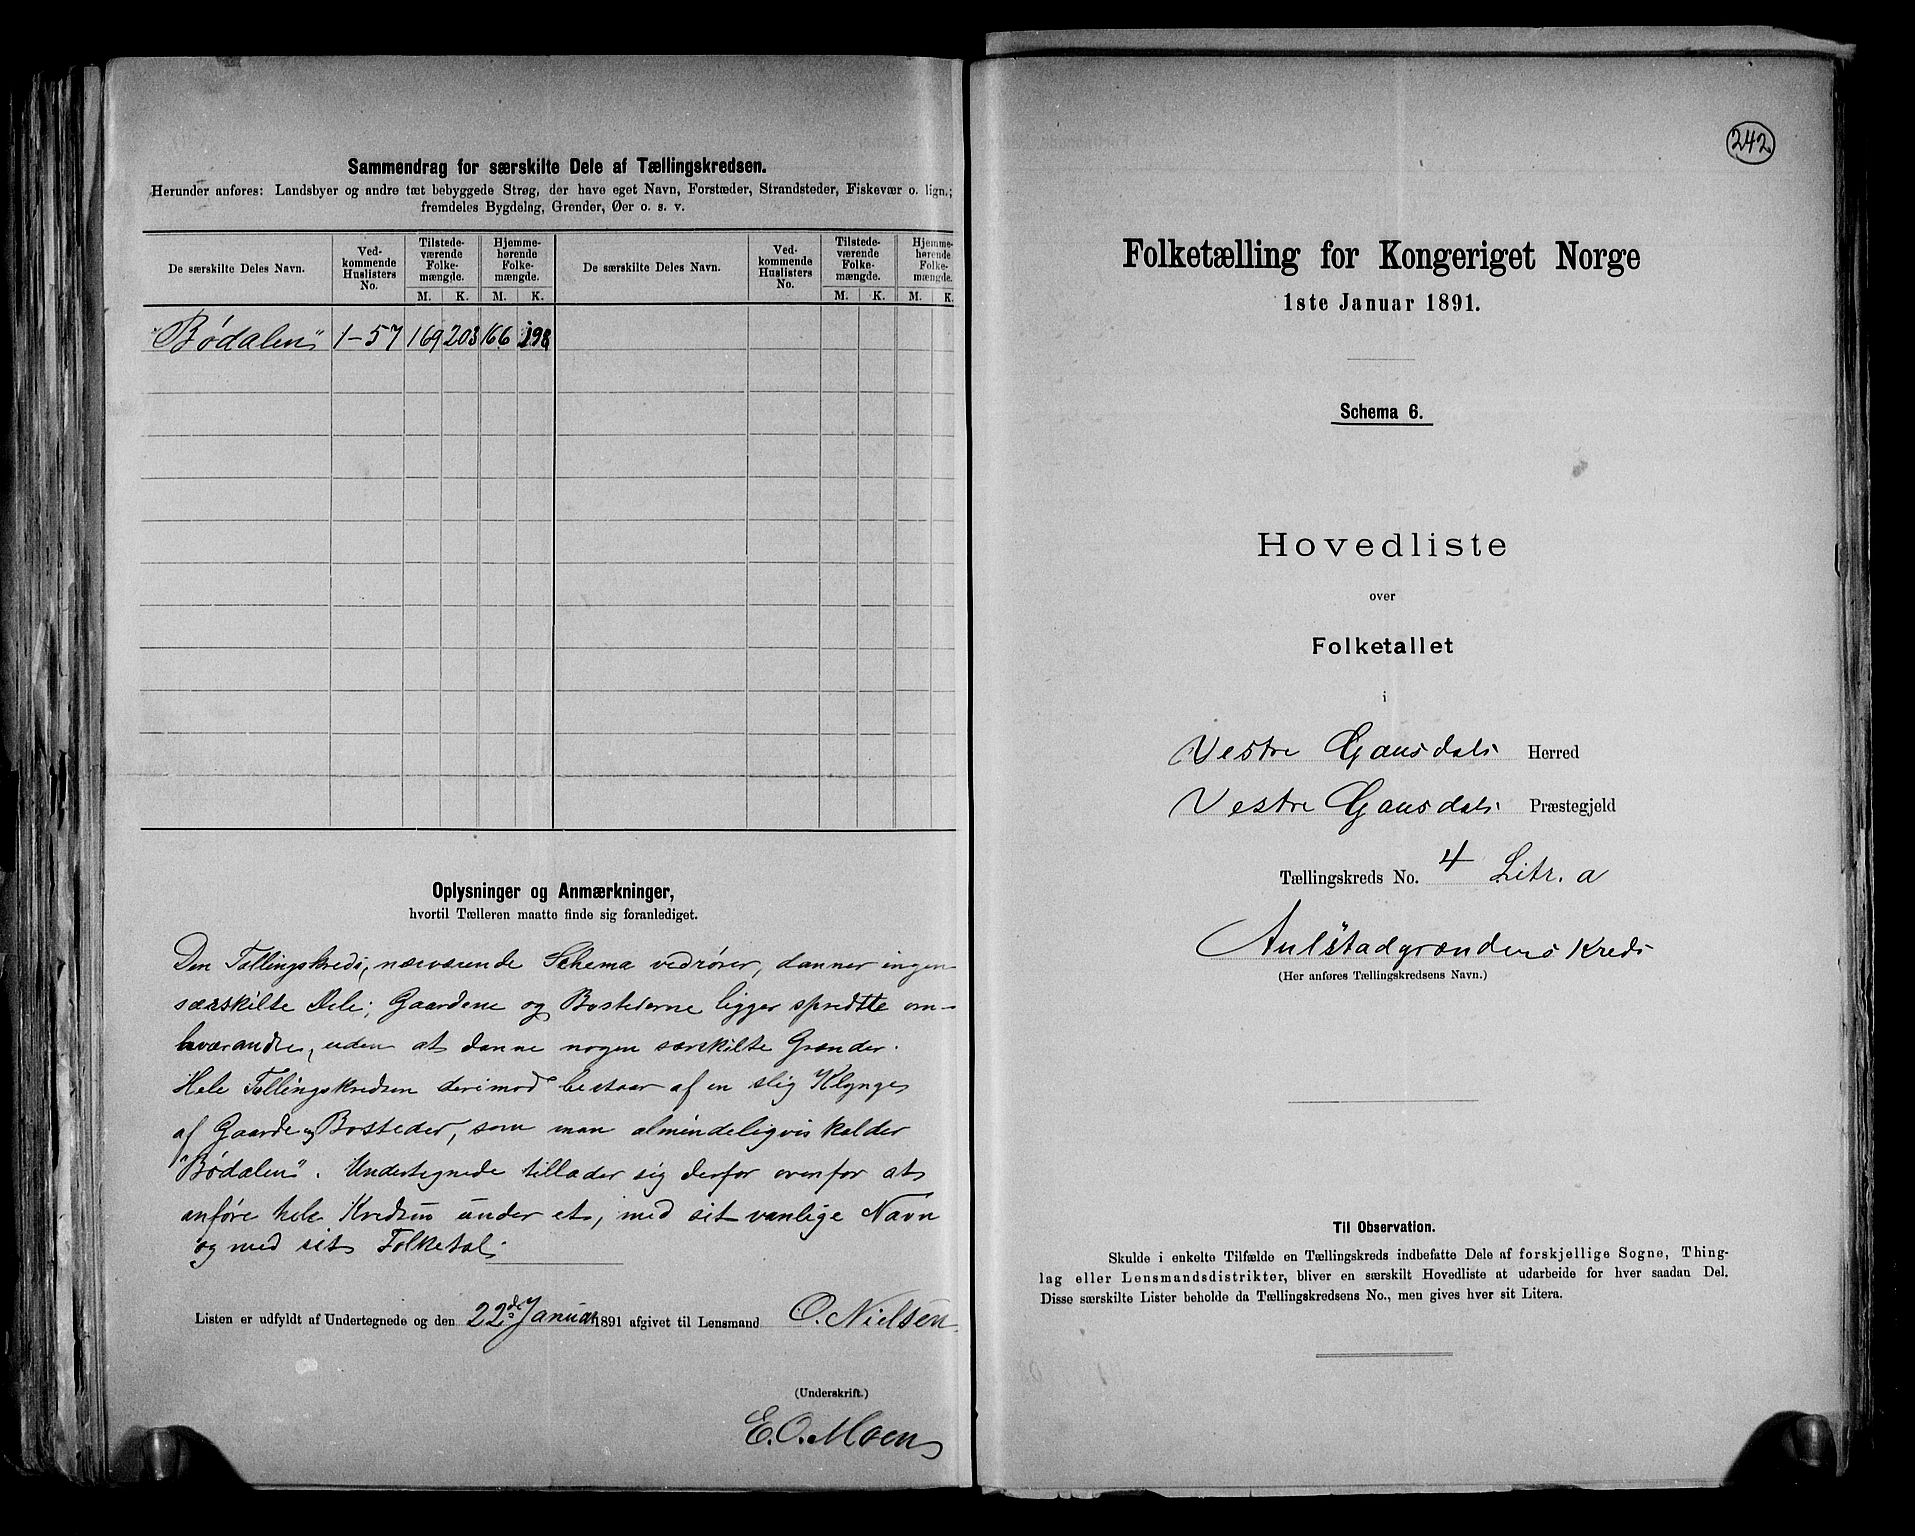 Sammendrag for særskilte Dele af Tællingskredsen.
Herunder anføres: Landsbyer og andre tæt bebyggede Strøg, der have eget Navn, Forstæder, Strandsteder, Fiskevær o. lign.;
fremdeles Bygdelag, Grender, Øer o. s. v.
De særskilte Deles Navn.
Ved-
kommende
Huslisters
No.
Tilstede-
værende
Folke-
mængde.
Hjemme-
hørende
Folke-
mængde.
De særskilte Deles Navn.
Ved-
kommende
Huslisters
No.
Tilstede-
værende
Folke-
mængde.
Hjemme-
hørende
Folke-
mængde.
M. K. M. K. M. K. M. K.
"Bødalen" 1-57 169 203 166 198
Oplysninger og Anmærkninger,
hvortil Tælleren maatte finde sig foranlediget.
Den Tællingskreds, nærværende Schema vedrører, danner ingen
særskilte Dele; Gaardene og Bostederne ligger spredte om-
hværandre, uden at danne nogen særskilte Grænder.
Hele Tællingskredsen derimod bestaar af en slig Klynge
af Gaarde og Bosteder, som man almindeligvis kalder
"Bødalen". Undertegnede tillader sig derfor ovenfor at
anføre hele Kredsen under et, med sit vanlige Navn
og med sit Folketal.
Listen er udfyldt af Undertegnede og den 22de Januar 1891 afgivet til Lensmand O. Nielsen.
(Underskrift.)
E. O. Moen
242
Folketælling for Kongeriget Norge
1ste Januar 1891.
Schema 6.
Hovedliste
over
Folketallet
i
Vestre Gausdals Herred
Vestre Gausdals Præstegjeld
Tællingskreds No. 4 Litr. a
Aulstadgrændens Kreds
(Her anføres Tællingskredsens Navn.)
Til Observation.
Skulde i enkelte Tilfælde en Tællingskreds indbefatte Dele af forskjellige Sogne, Thing-
lag eller Lensmandsdistrikter, bliver en særskilt Hovedliste at udarbeide for hver saadan Del.
Disse særskilte Lister beholde da Tællingskredsens No., men gives hver sit Litera.